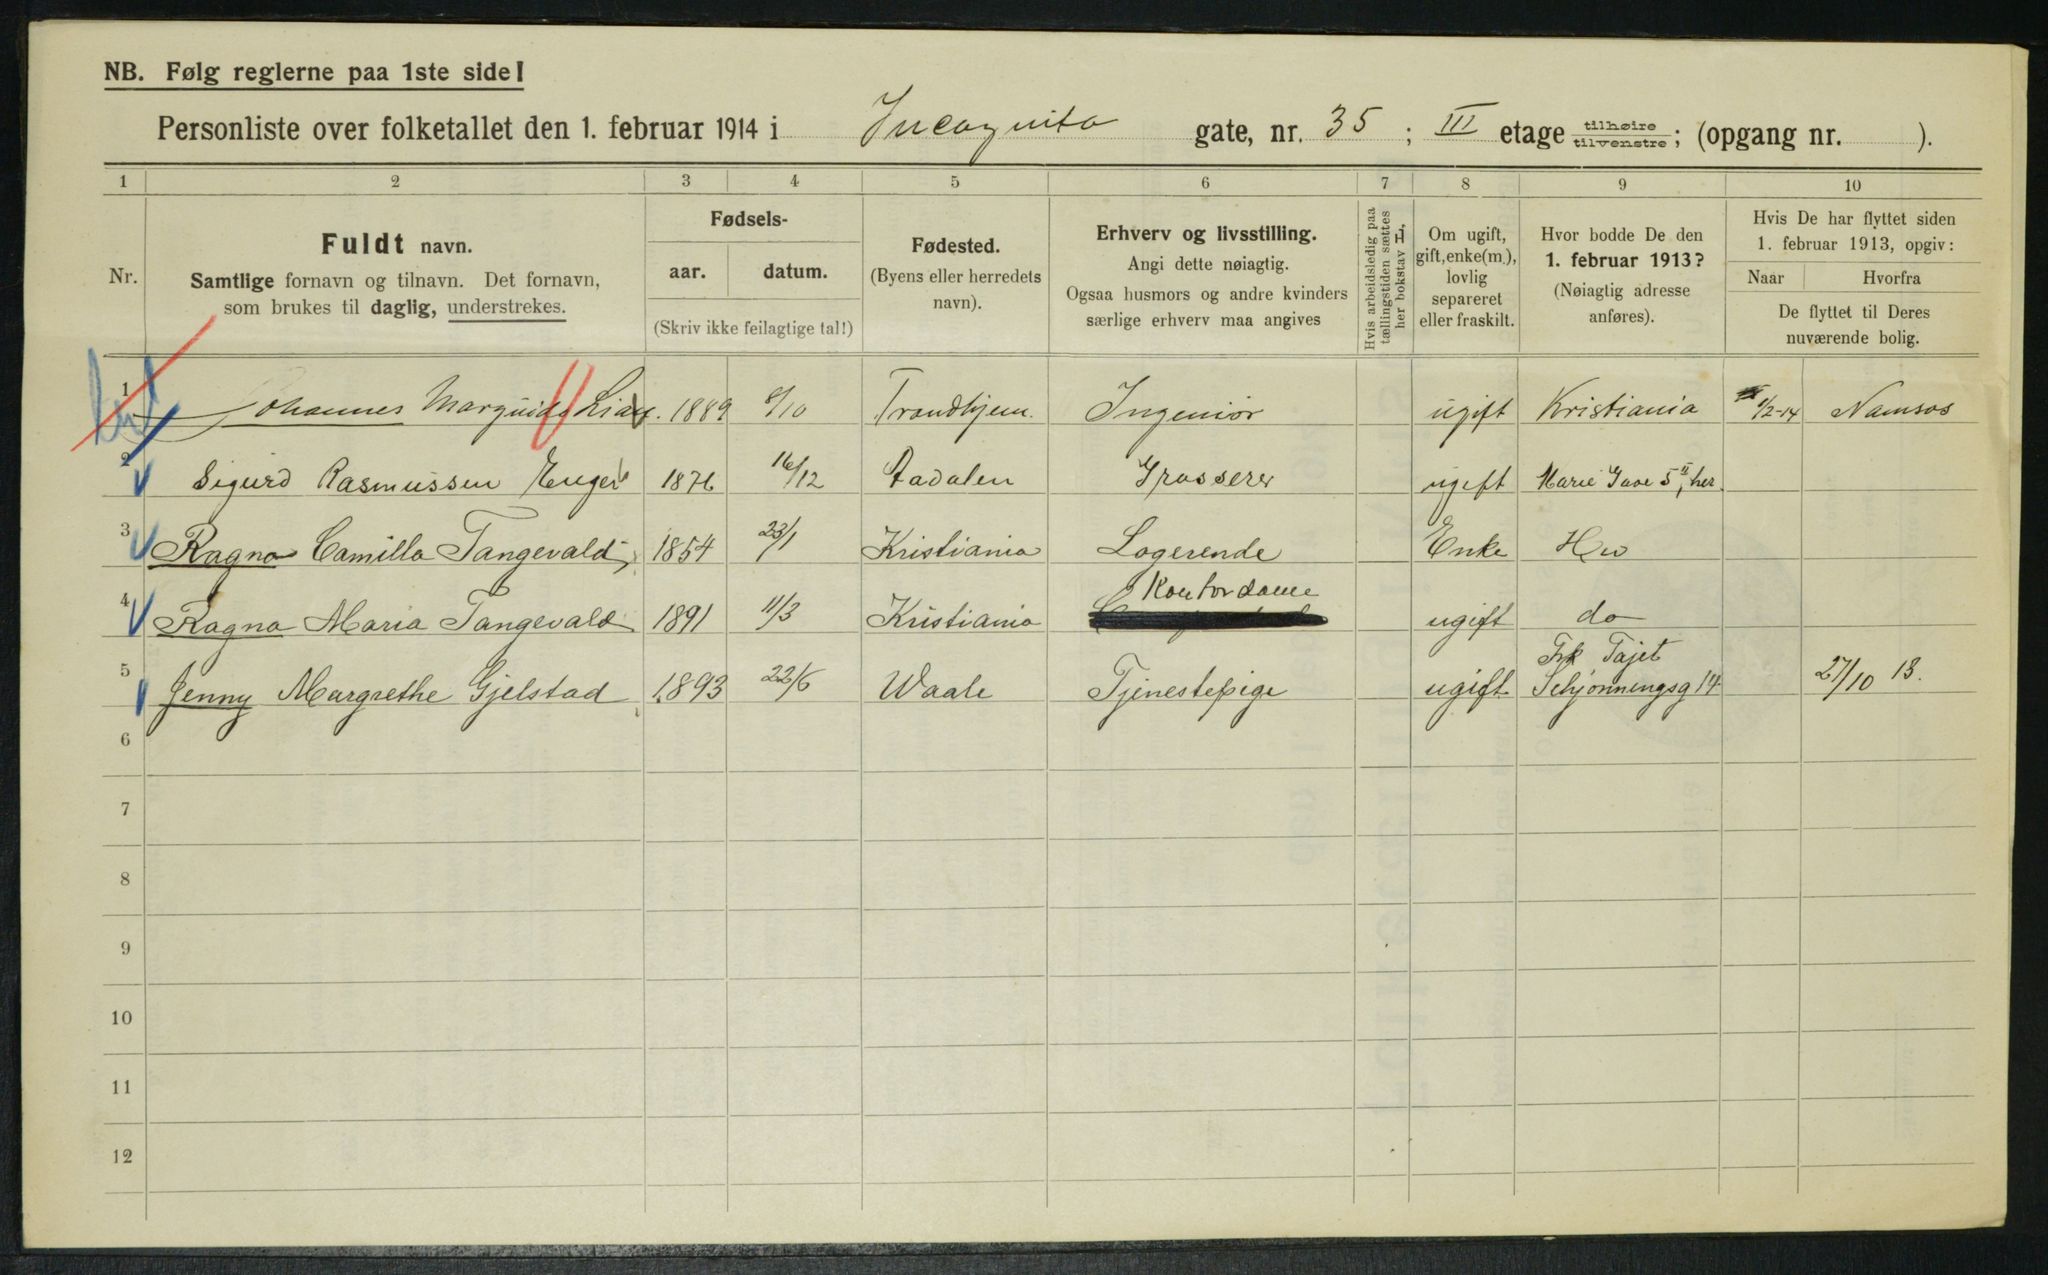 NB. Følg reglerne paa 1ste side!
Personliste over folketallet den 1. februar 1914 i Incognito gate, nr. 35; III etage tilhøire tilvenstre; (opgang nr. ).
1 2 3 4 5 6 7 8 9 10
Nr.
Fuldt navn.
Samtlige fornavn og tilnavn. Det fornavn,
som brukes til daglig, understrekes.
Fødsels-
aar. datum.
(Skriv ikke feilagtige tal!)
Fødested.
(Byens eller herredets
navn).
Erhverv og livsstilling.
Angi dette nøiagtig.
Ogsaa husmors og andre kvinders
særlige erhverv maa angives
Hvis arbeidsledig paa
tællingstiden sættes
her bokstav H.
Om ugift,
gift, enke(m.),
lovlig
separeret
eller fraskilt.
Hvor bodde De den
1. februar 1913?
(Nøiagtig adresse
anføres).
Hvis De har flyttet siden
1. februar 1913, opgiv:
Naar Hvorfra
De flyttet til Deres
nuværende bolig.
1 Johannes Lian. 1889 /10 Trondhjem. Ingeniør ugift Kristiania 1/2-14 Namsos
2 Sigurd Rasmussen Enger 1876 16/12 Aadalen Grosserer ugift Marie Gave 5 II, her.
3 Ragna Camilla Tangevald 1854 23/1 Kristiania Logerende Enke Her
4 Ragna Maria Tangevald 1891 11/3 Kristiania Kontordame ugift do
5 Jenny Margrethe Gjelstad 1893 22/6 Waale Tjenestepige ugift Frk Tajet Schjønningsg 14 27/10 13.
6
7
8
9
10
11
12